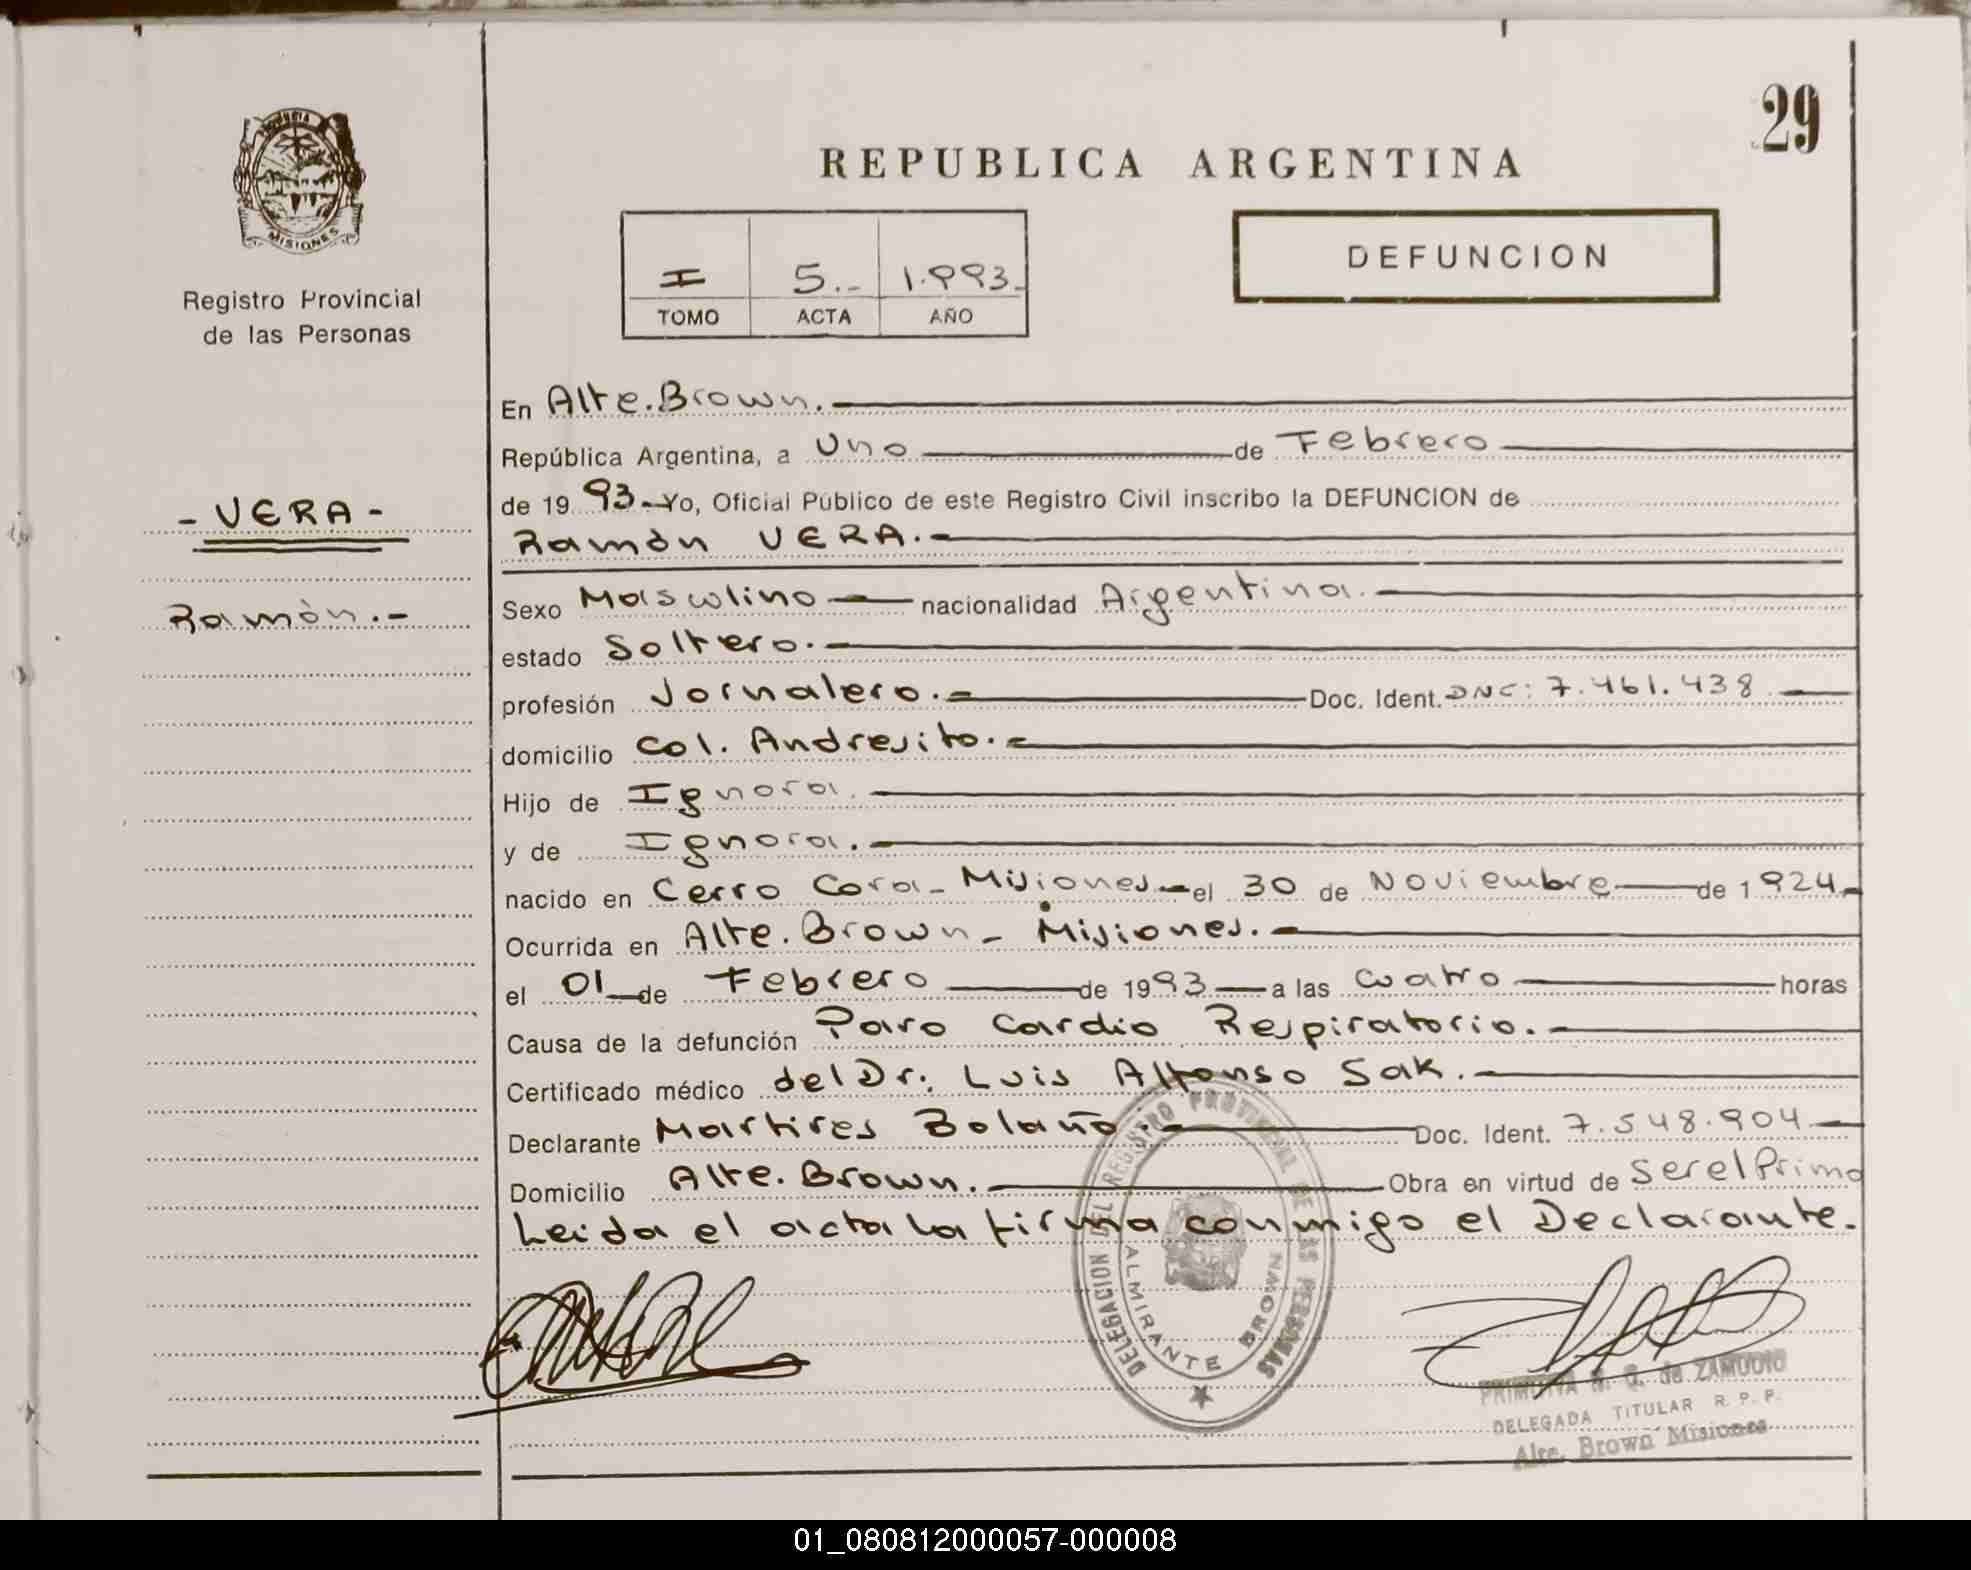 29
PROVINCIA
MISIONES
Registro Provincial
de las Personas
- VERA -
Ramón.-
REPUBLICA ARGENTINA
I 5.- 1.993.
TOMO ACTA AÑO
DEFUNCION
En Alte. Brown.
República Argentina, a Uno de Febrero
de 19 93 Yo, Oficial Público de este Registro Civil inscribo la DEFUNCION de
Ramón VERA.
Sexo Masculino nacionalidad Argentina.
estado Soltero.
profesión Jornalero. Doc. Ident. DNC: 7.461.438
domicilio Col. Andresito.
Hijo de Ignora.
y de Ignora.
nacido en Cerro Cora - Misiones el 30 de Noviembre de 1924
Ocurrida en Alte. Brown - Misiones.
el 01 de Febrero de 1993 a las cuatro horas
Causa de la defunción Paro Cardio Respiratorio.
Certificado médico del Dr. Luis Alfonso Sak.
Declarante Martires Bolaño. Doc. Ident. 7.548.904
Domicilio Alte. Brown. Obra en virtud de ser el Primo
Leida el acta la firma conmigo el Declarante.
DELEGACION DEL REGISTRO PROVINCIAL DE LAS PERSONAS
ALMIRANTE BROWN
PRIMITIVA de ZAMUDIO
DELEGADA TITULAR R. P. P.
Alte. Brown Misiones
01_080812000057-000008